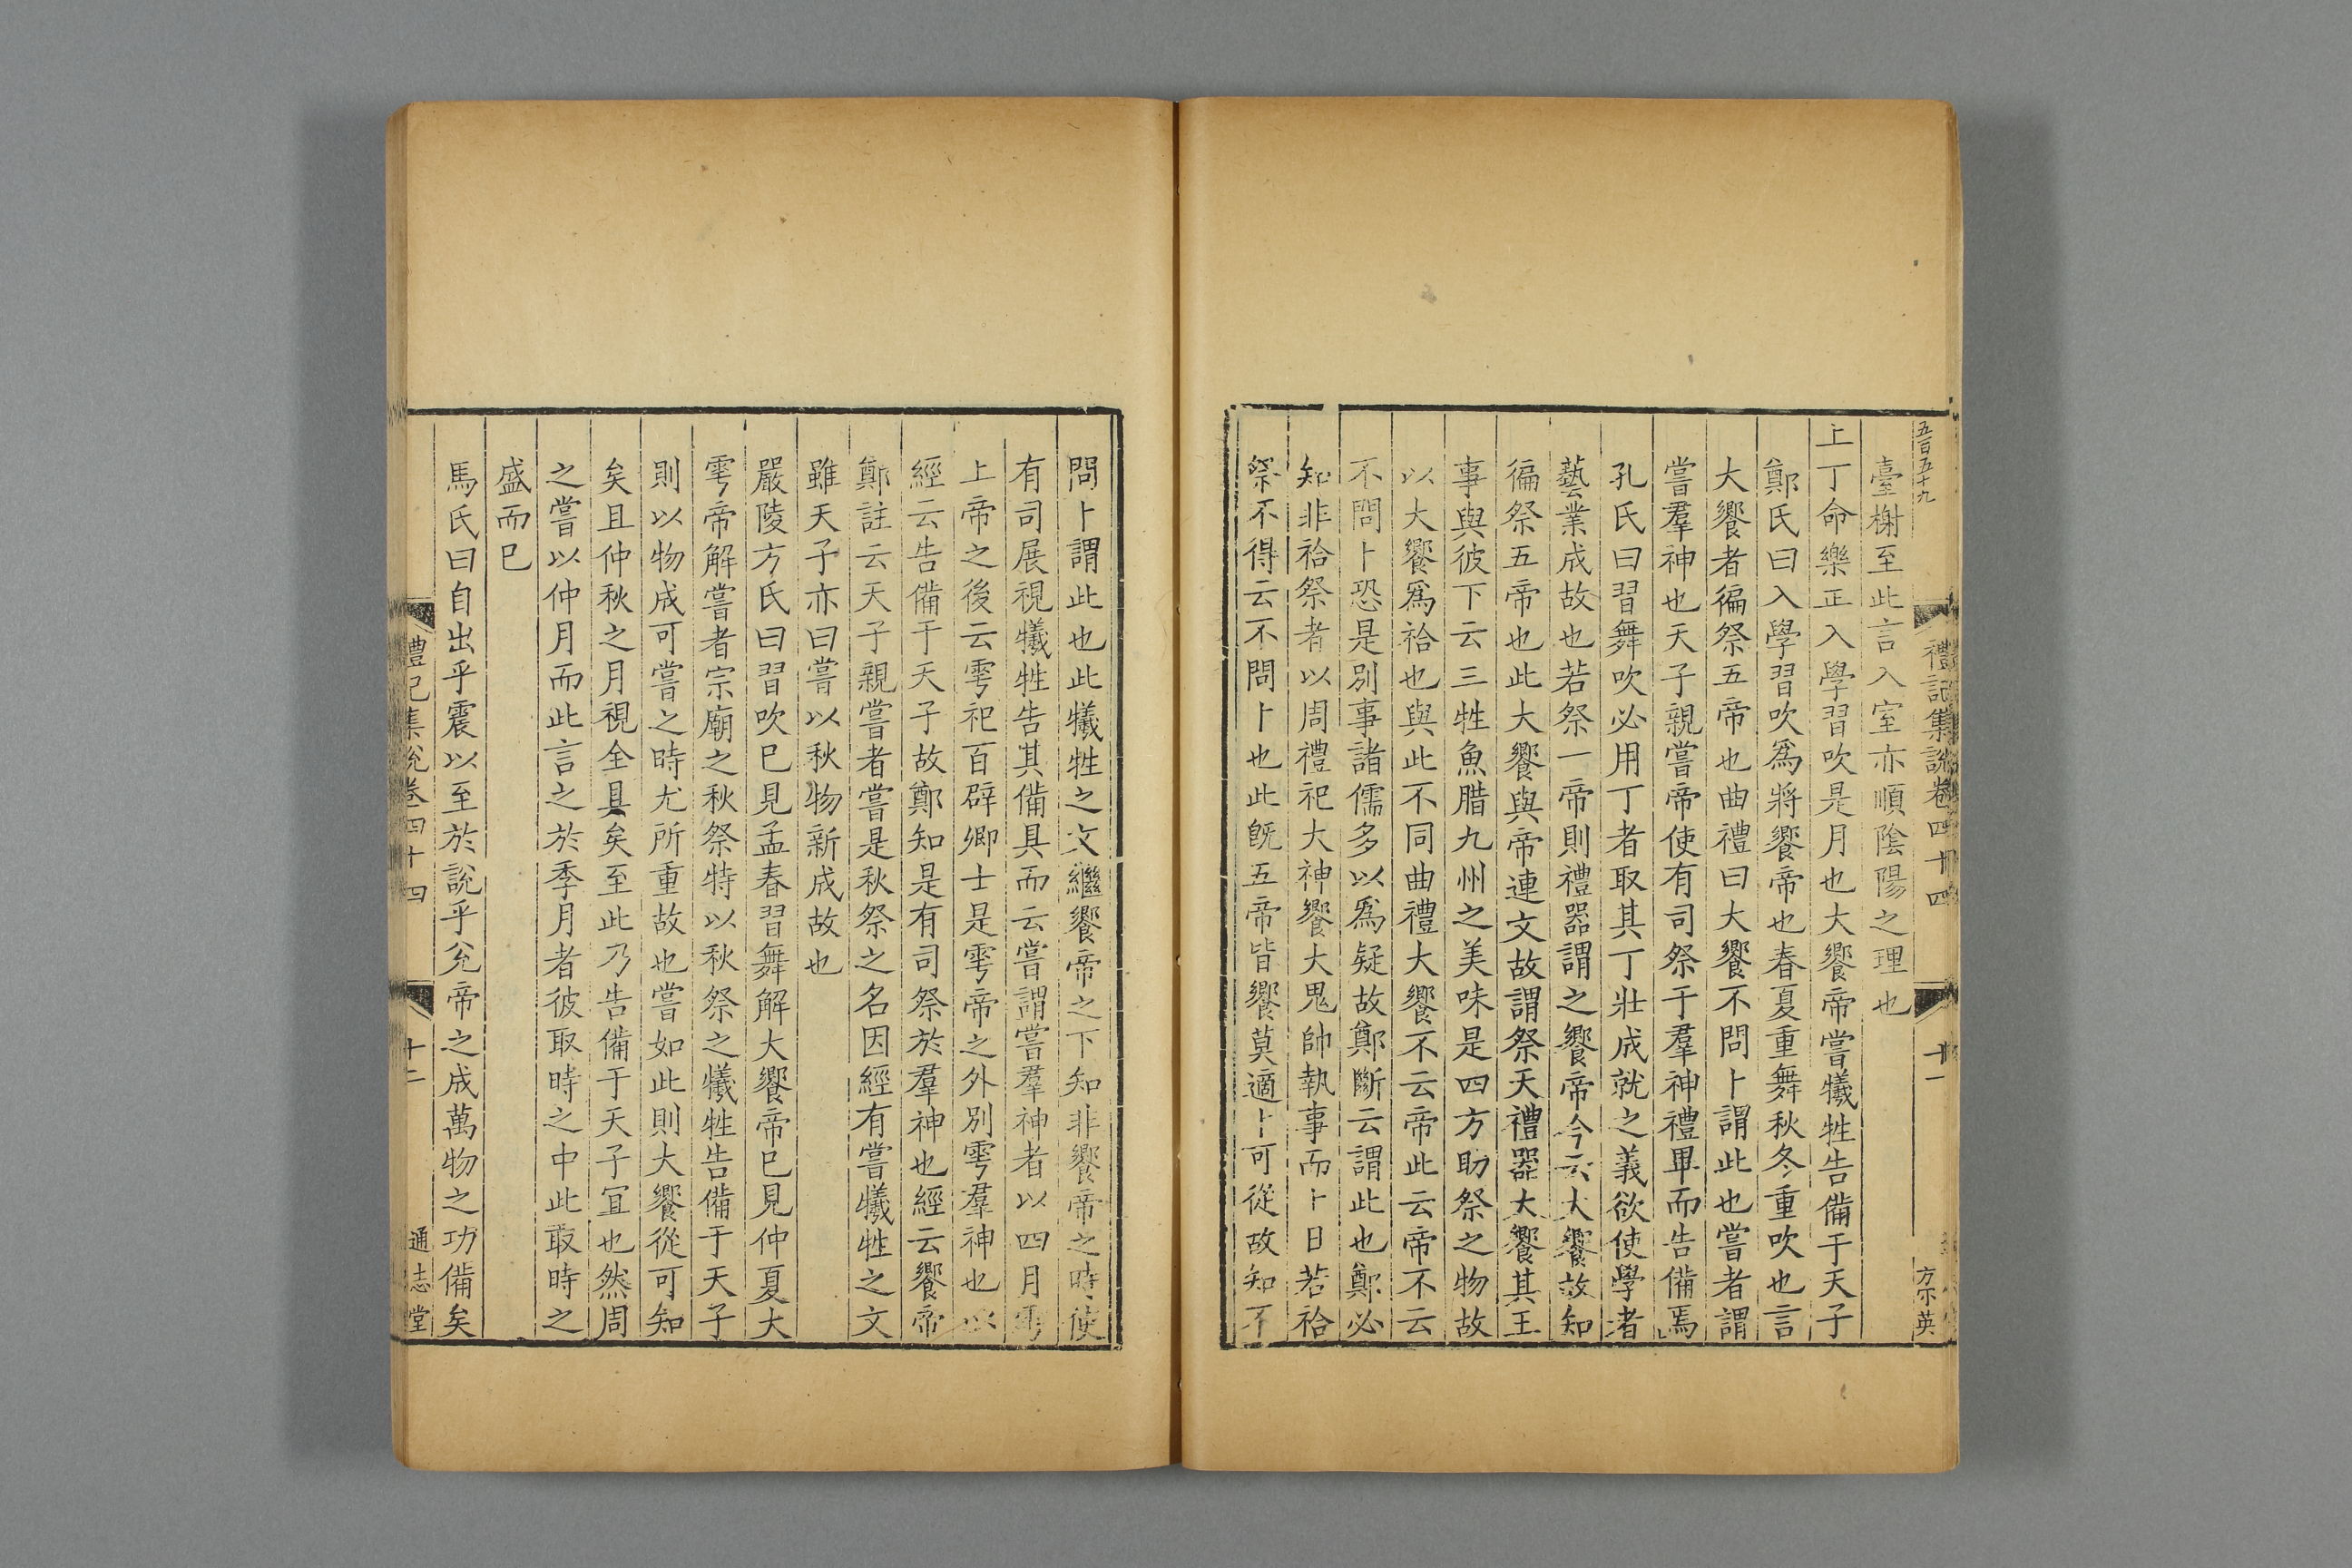 五百五十九
禮記集說卷四十四
十一
方尓英
臺榭至此言入室亦順陰陽之理也
上丁命樂正入學習吹是月也大饗帝嘗犧牲告備于天子
鄭氏曰入學習吹爲將饗帝也春夏重舞秋冬重吹也言
大饗者徧祭五帝也曲禮曰大饗不問卜謂此也嘗者謂
嘗羣神也天子親嘗帝使有司祭于羣神禮畢而告備焉
孔氏曰習舞吹必用丁者取其丁壯成就之義欲使學者
藝業成故也若祭一帝則禮器謂之饗帝今云大饗故知
徧祭五帝也此大饗與帝連文故謂祭天禮器大饗其王
事與彼下云三牲魚腊九州之美味是四方助祭之物故
以大饗爲祫也與此不同曲禮大饗不云帝此云帝不云
不問卜恐是別事諸儒多以爲疑故鄭斷云謂此也鄭必
知非祫祭者以周禮祀大神饗大鬼帥執事而卜日若祫
祭不得云不問卜也此旣五帝皆饗莫適卜可從故知不
問卜謂此也此犧牲之文繼饗帝之下知非饗帝之時使
有司展視犧牲告其備具而云嘗謂嘗羣神者以四月雩
上帝之後云雩祀百辟卿士是雩帝之外別雩羣神也以
經云告備于天子故鄭知是有司祭於羣神也經云饗帝
鄭註云天子親嘗者嘗是秋祭之名因經有嘗犧牲之文
雖天子亦曰嘗以秋物新成故也
嚴陵方氏曰習吹巳見孟春習舞解大饗帝巳見仲夏大
雩帝解嘗者宗廟之秋祭特以秋祭之犧牲告備于天子
則以物成可嘗之時尤所重故也嘗如此則大饗從可知
矣且仲秋之月視全具矣至此乃告備于天子宜也然周
之嘗以仲月而此言之於季月者彼取時之中此取時之
盛而巳
馬氏曰自出乎震以至於說乎兊帝之成萬物之功備矣
禮記集說卷四十四
十二
通志堂